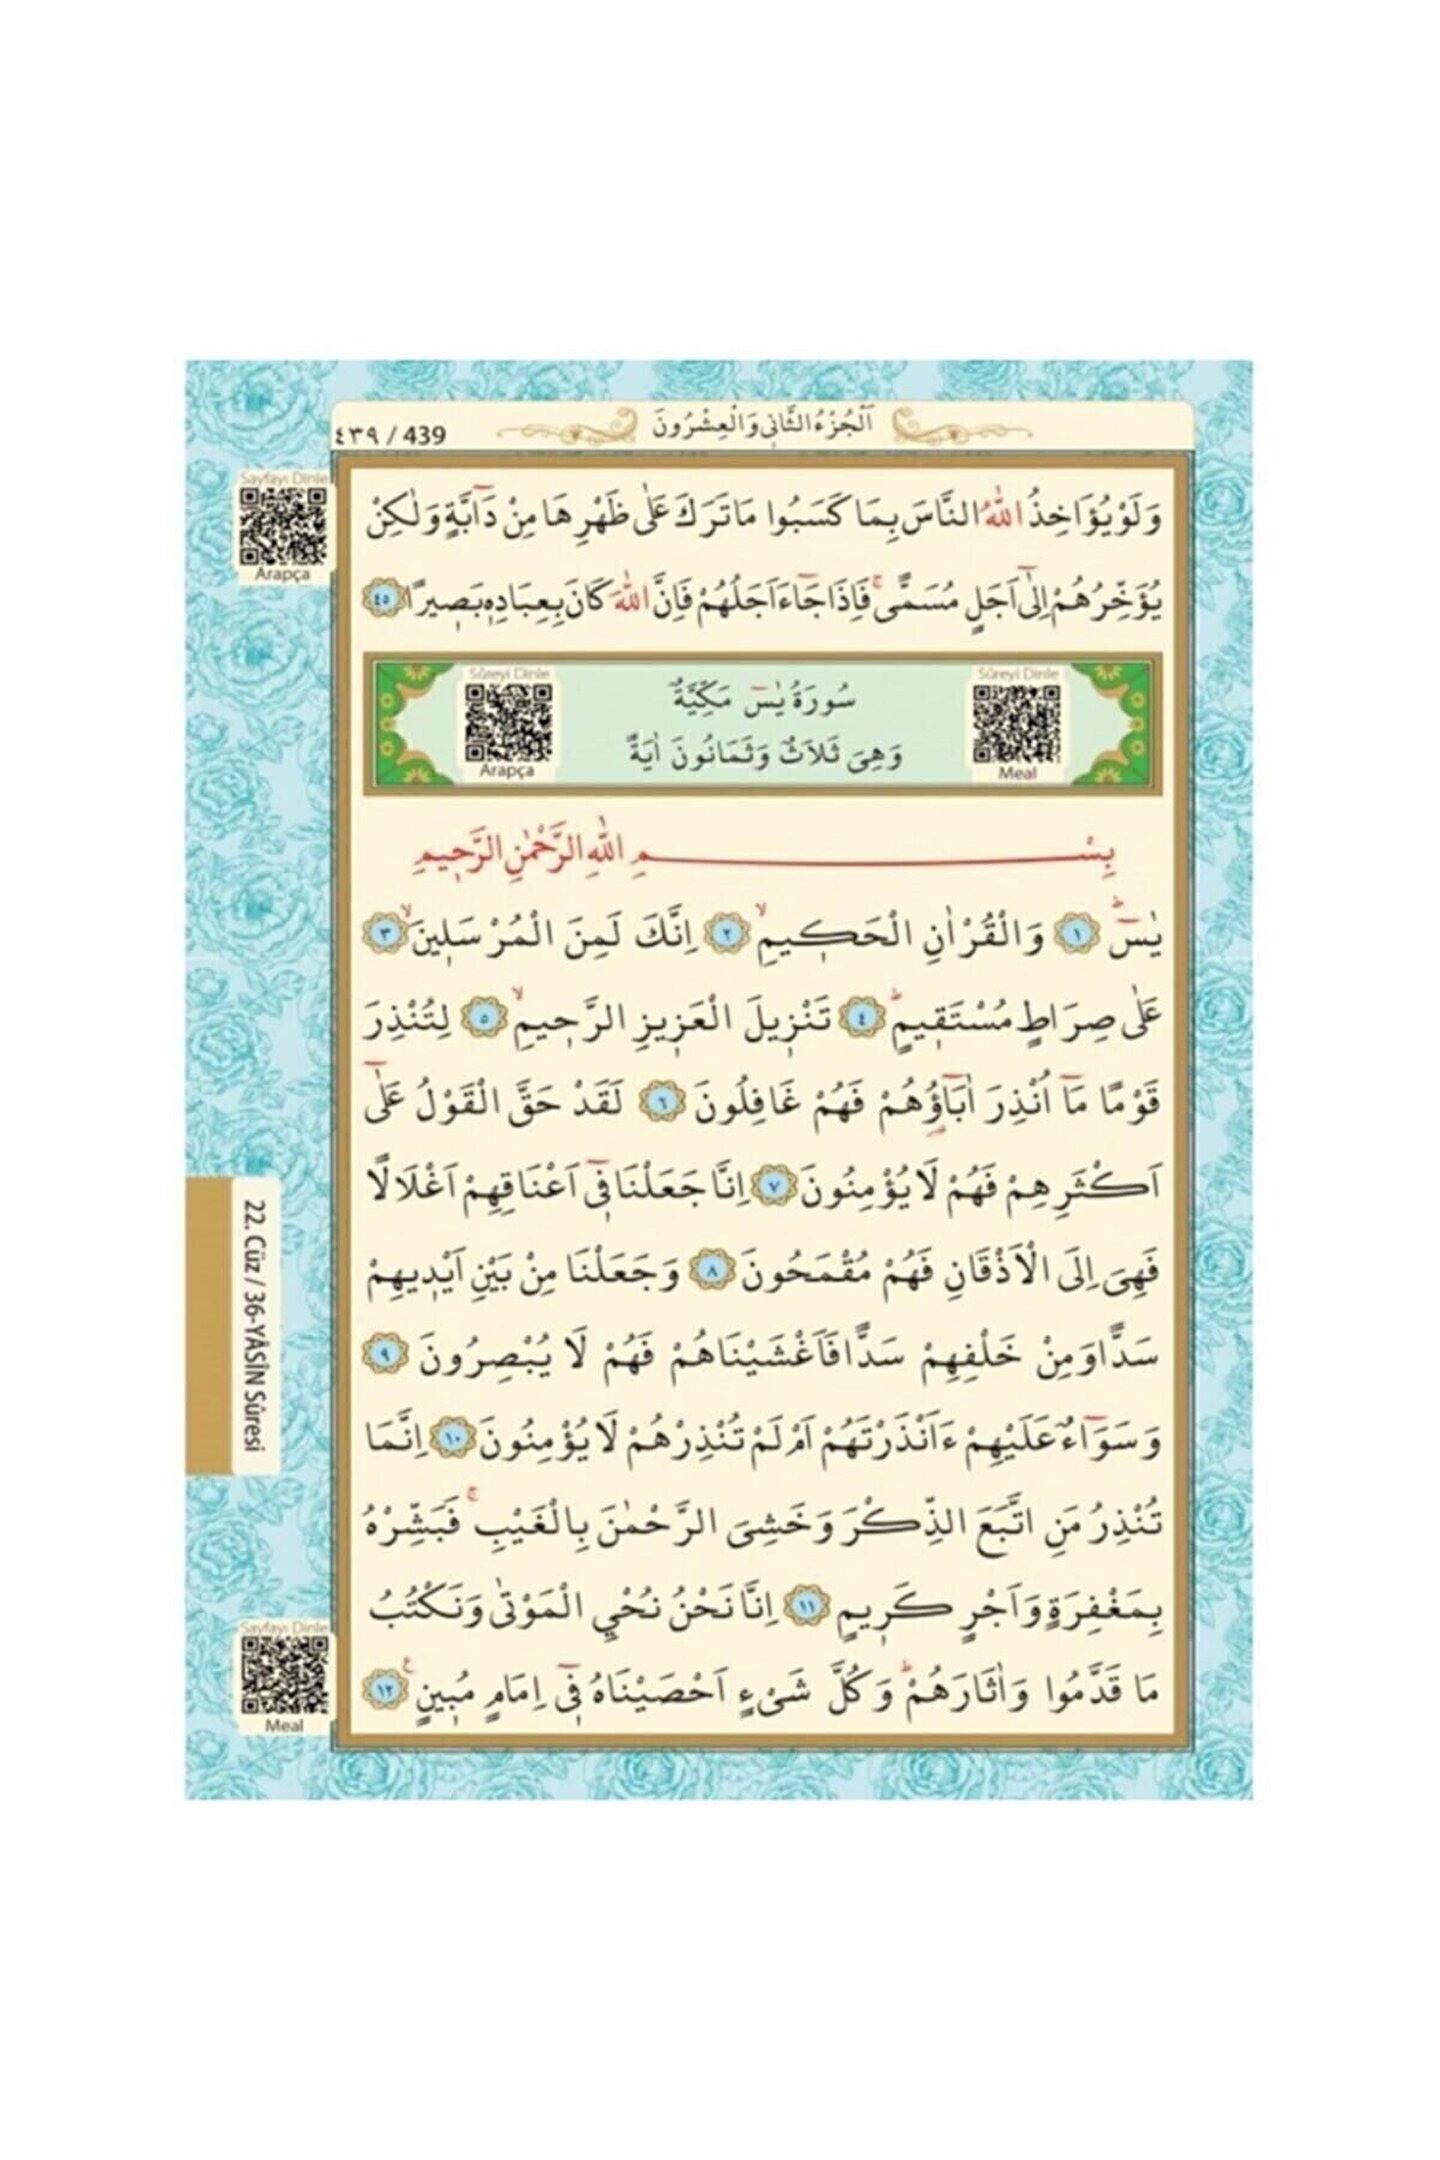 اَلْجُزْءُ الثَّانٖى وَالْعِشْرُونَ
٤٣٩ / 439
Sayfayı Dinle
Arapça
وَلَوْ يُؤَاخِذُ اللّٰهُ النَّاسَ بِمَا كَسَبُوا مَا تَرَكَ عَلٰى ظَهْرِهَا مِنْ دَٓابَّةٍ وَلٰكِنْ
يُؤَخِّرُهُمْ اِلٰٓى اَجَلٍ مُسَمًّىۚ فَاِذَا جَٓاءَ اَجَلُهُمْ فَاِنَّ اللّٰهَ كَانَ بِعِبَادِهٖ بَصٖيرًا ٤٥
Sûreyi Dinle
Meal
سُورَةُ يٰسٓ مَكِّيَّةٌ
وَهِىَ ثَلَاثٌ وَثَمَانُونَ اٰيَةً
Sûreyi Dinle
Arapça
بِسْمِ اللّٰهِ الرَّحْمٰنِ الرَّحٖيمِ
يٰسٓۜ ١ وَالْقُرْاٰنِ الْحَكٖيمِۙ ٢ اِنَّكَ لَمِنَ الْمُرْسَلٖينَۙ ٣
عَلٰى صِرَاطٍ مُسْتَقٖيمٍۜ ٤ تَنْزٖيلَ الْعَزٖيزِ الرَّحٖيمِۙ ٥ لِتُنْذِرَ
قَوْمًا مَٓا اُنْذِرَ اٰبَٓاؤُ۬هُمْ فَهُمْ غَافِلُونَ ٦ لَقَدْ حَقَّ الْقَوْلُ عَلٰٓى
اَكْثَرِهِمْ فَهُمْ لَا يُؤْمِنُونَ ٧ اِنَّا جَعَلْنَا فٖٓى اَعْنَاقِهِمْ اَغْلَالًا
فَهِىَ اِلَى الْاَذْقَانِ فَهُمْ مُقْمَحُونَ ٨ وَجَعَلْنَا مِنْ بَيْنِ اَيْدٖيهِمْ
سَدًّا وَمِنْ خَلْفِهِمْ سَدًّا فَاَغْشَيْنَاهُمْ فَهُمْ لَا يُبْصِرُونَ ٩
وَسَوَٓاءٌ عَلَيْهِمْ ءَاَنْذَرْتَهُمْ اَمْ لَمْ تُنْذِرْهُمْ لَا يُؤْمِنُونَ ١٠ اِنَّمَا
تُنْذِرُ مَنِ اتَّبَعَ الذِّكْرَ وَخَشِىَ الرَّحْمٰنَ بِالْغَيْبِۚ فَبَشِّرْهُ
بِمَغْفِرَةٍ وَاَجْرٍ كَرٖيمٍ ١١ اِنَّا نَحْنُ نُحْيِ الْمَوْتٰى وَنَكْتُبُ
مَا قَدَّمُوا وَاٰثَارَهُمْۜ وَكُلَّ شَىْءٍ اَحْصَيْنَاهُ فٖٓى اِمَامٍ مُبٖينٍࣖ ١٢
22. Cüz / 36-YÂSİN Sûresi
Sayfayı Dinle
Meal